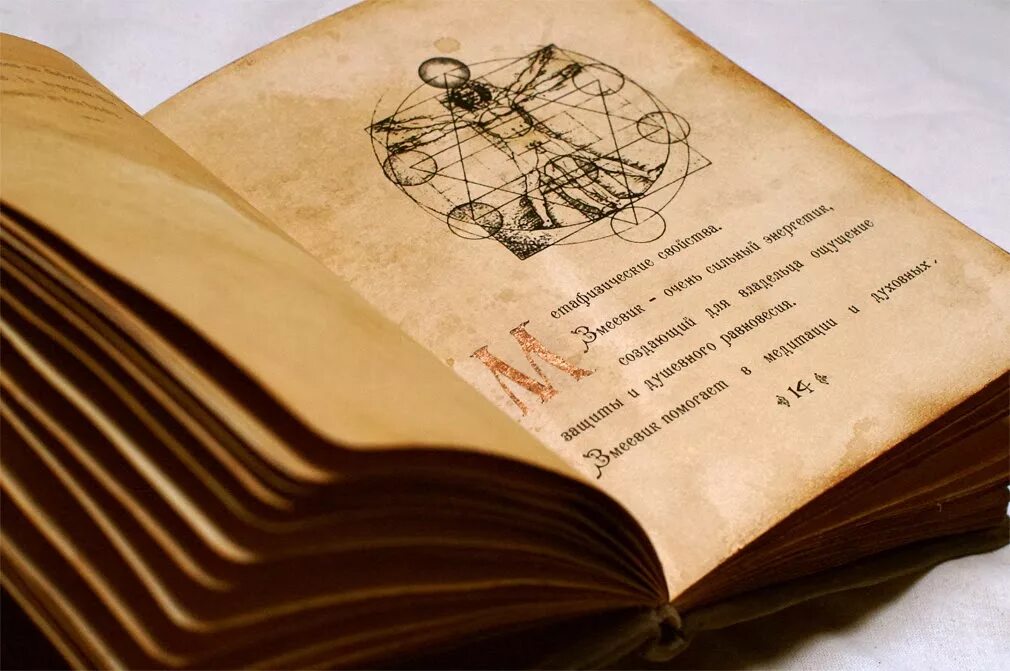 Метафизические свойства.
Змеевик - очень сильный энергетик,
создающий для владельца ощущение
защиты и душевного равновесия.
Змеевик помогает в медитации и духовных,
14